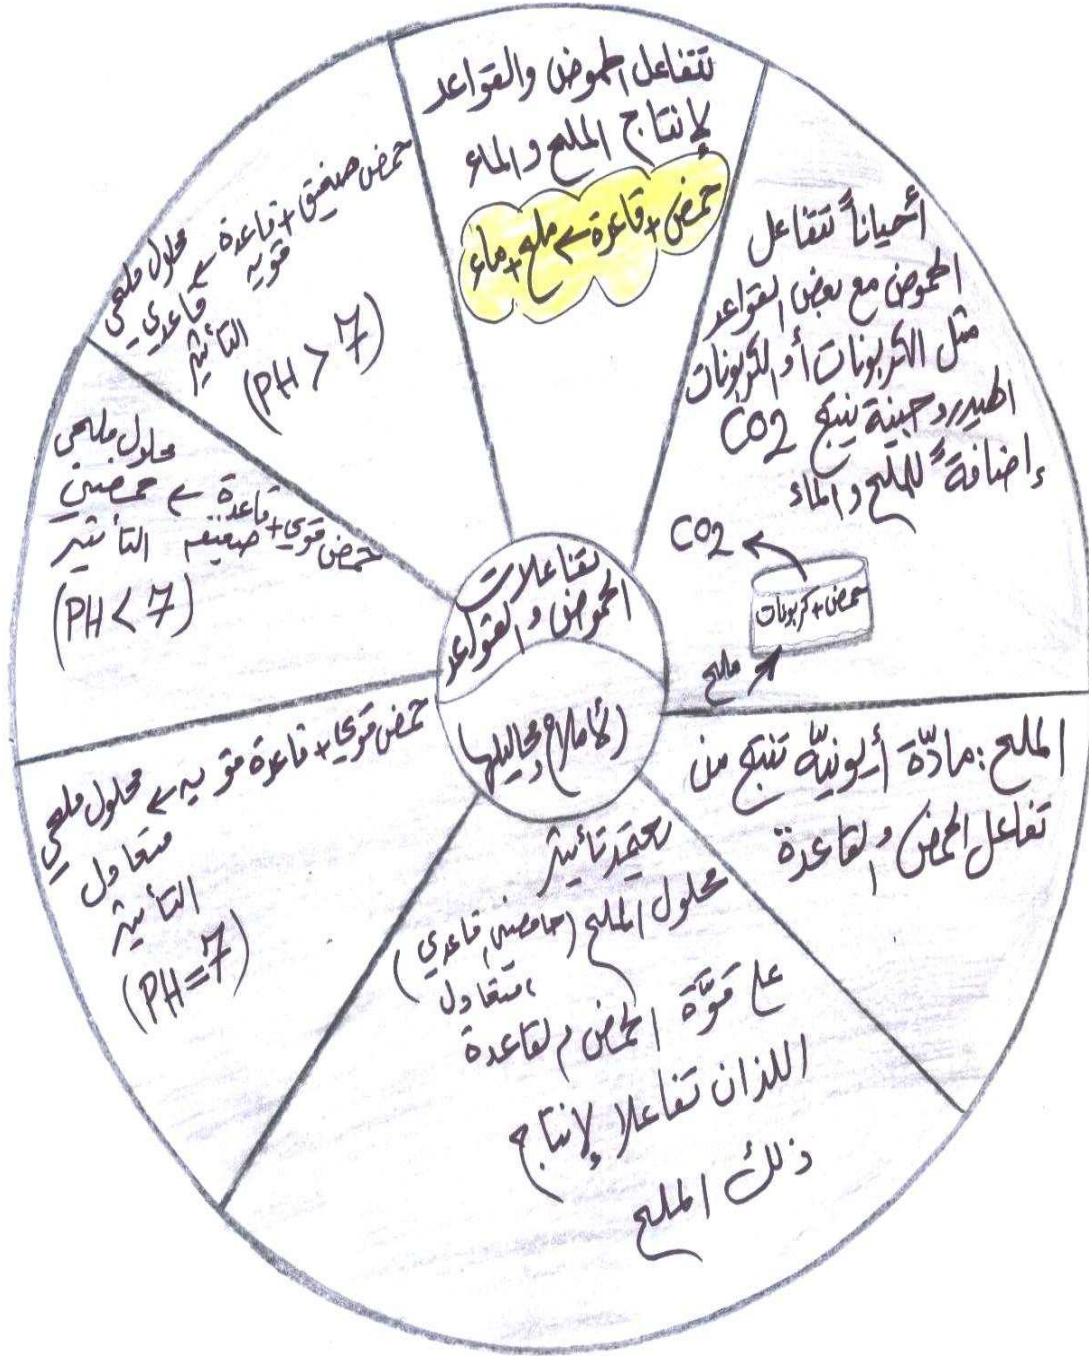 تفاعلات
الحموض والقواعد
الأملاح ومحاليلها
تتفاعل الحموض والقواعد
لإنتاج الملح والماء
حمض + قاعدة ← ملح + ماء
أحياناً تتفاعل
الحموض مع بعض القواعد
مثل الكربونات أو الكربونات
الهيدروجينية ينتج CO2
إضافةً للملح والماء
CO2
حمض + كربونات
ملح
الملح: مادّة أيونيّة تنتج من
تفاعل الحمض والقاعدة
يعتمد تأثير
محلول الملح (حامضي، قاعدي
، متعادل)
على قوّة الحمض والقاعدة
اللذان تفاعلا لإنتاج
ذلك الملح
حمض قوي + قاعدة قويه ← محلول ملحي
متعادل
التأثير
(PH = 7)
حمض قوي + قاعدة ضعيفه ← محلول ملحي
حمضي
التأثير
(PH < 7)
حمض ضعيف + قاعدة قويه ← محلول ملحي
قاعدي
التأثير
(PH > 7)